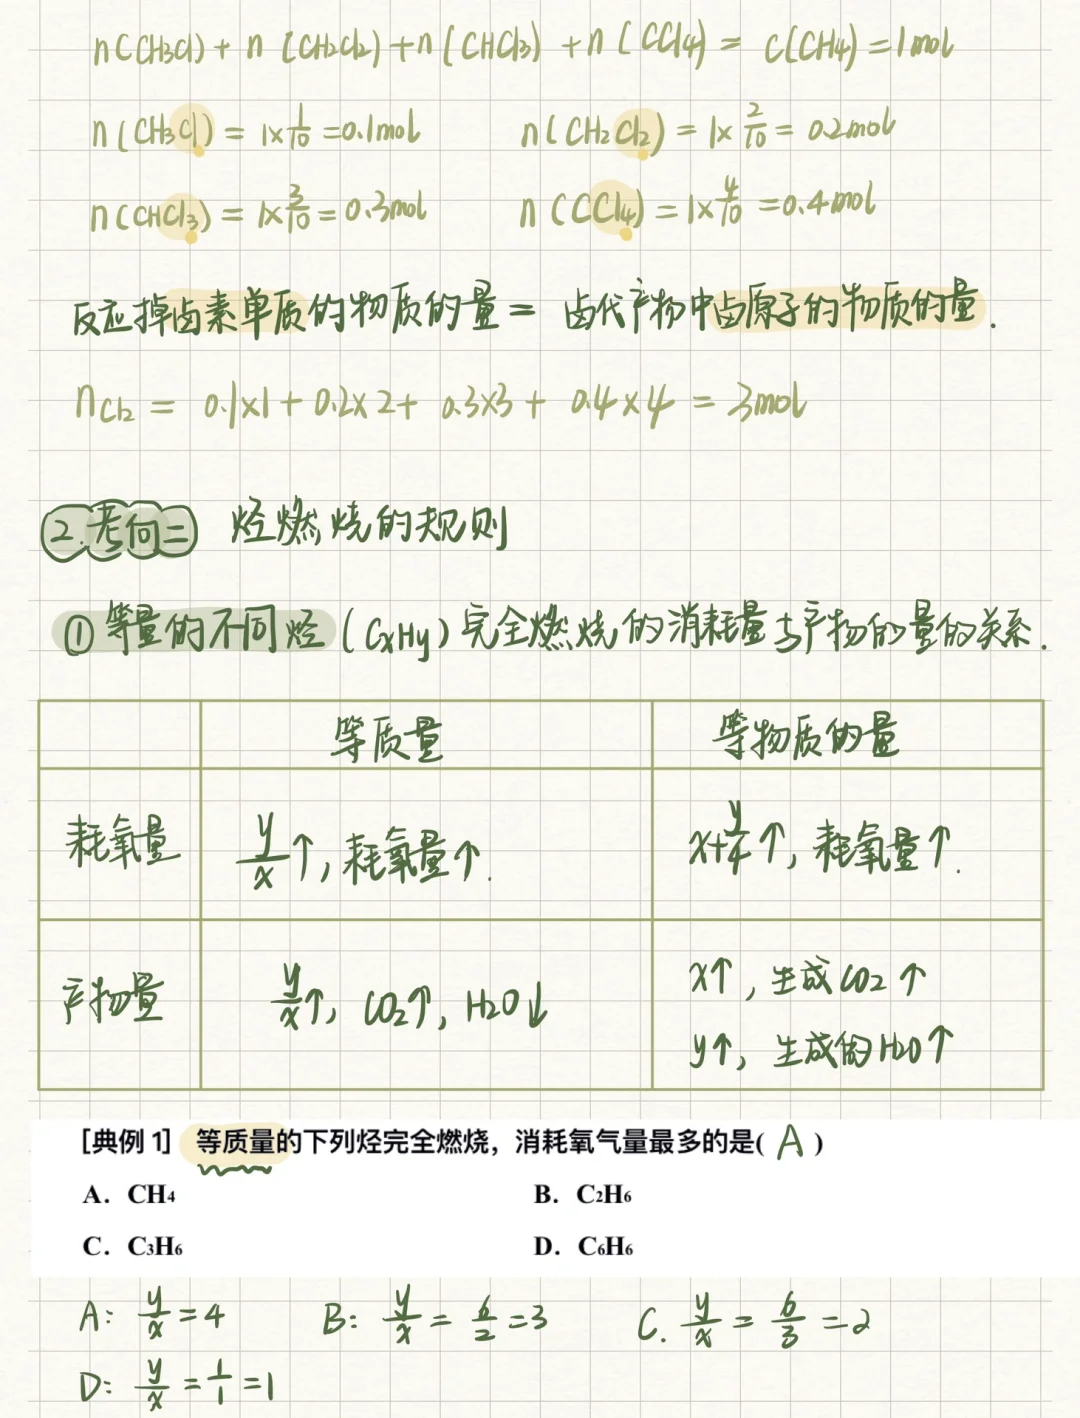 n(CH3Cl) + n(CH2Cl2) + n(CHCl3) + n(CCl4) = C(CH4) = 1mol
n(CH3Cl) = 1×1/10 = 0.1mol
n(CH2Cl2) = 1×2/10 = 0.2mol
n(CHCl3) = 1×3/10 = 0.3mol
n(CCl4) = 1×4/10 = 0.4mol
反应掉卤素单质的物质的量 = 卤代产物中卤原子的物质的量.
nCl2 = 0.1×1 + 0.2×2 + 0.3×3 + 0.4×4 = 3mol
2.考向二 烃燃烧的规则
①等量的不同烃(CxHy)完全燃烧的消耗量与产物的量的关系.
等质量 等物质的量
耗氧量 y/x↑, 耗氧量↑. x+y/4↑, 耗氧量↑.
产物量 y/x↑, CO2↑, H2O↓
x↑, 生成CO2↑
y↑, 生成的H2O↑
[典例 1] 等质量的下列烃完全燃烧，消耗氧气量最多的是( A )
A. CH4 B. C2H6
C. C3H6 D. C6H6
A: y/x = 4 B: y/x = 6/2 = 3 C. y/x = 6/3 = 2
D: y/x = 1/1 = 1